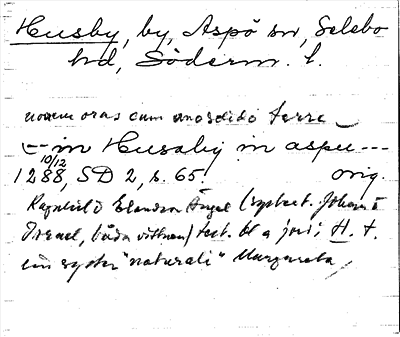 Husby, by, Aspö sn, Selebo
hd, Söderm. l.
novem oras cum anosdido terre
<-- in Husaby in aspu ---
10/12
1288, SD 2, s. 65. orig.
Ragnhild Elandsr Ängel (systert. Johan o
Israel, båda vittnen) test. bl a jord i H. t.
sin syster "naturali" Margareta